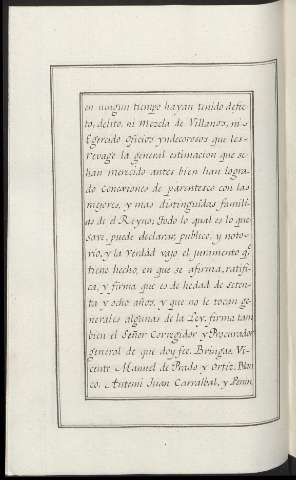 en ningun tiempo hayan tenido defec
to, delito, ni Mezcla de Villanos, ni
Egercido oficios yndecorosos que les
revage la general estimacion que se
han merecido antes bien han logra
do Conexiones de parentesco con las
mejores, y mas distinguidas famili
as de el Reyno; todo lo qual es lo que
save, puede declarar, publico, y noto
rio, y la Verdad vajo el juramento q.e
tiene hecho, en que se afirma, ratifi
ca, y firma que es de hedad de seten
ta y ocho años, y que no le tocan ge
nerales algunas de la Ley, firma tam
bien el Señor Corregidor y Procurador
general de que doy fee. Bringas, Vi
cente Manuel de Prado y Ortiz, Blan
co, Antemi Juan Carralbal, y